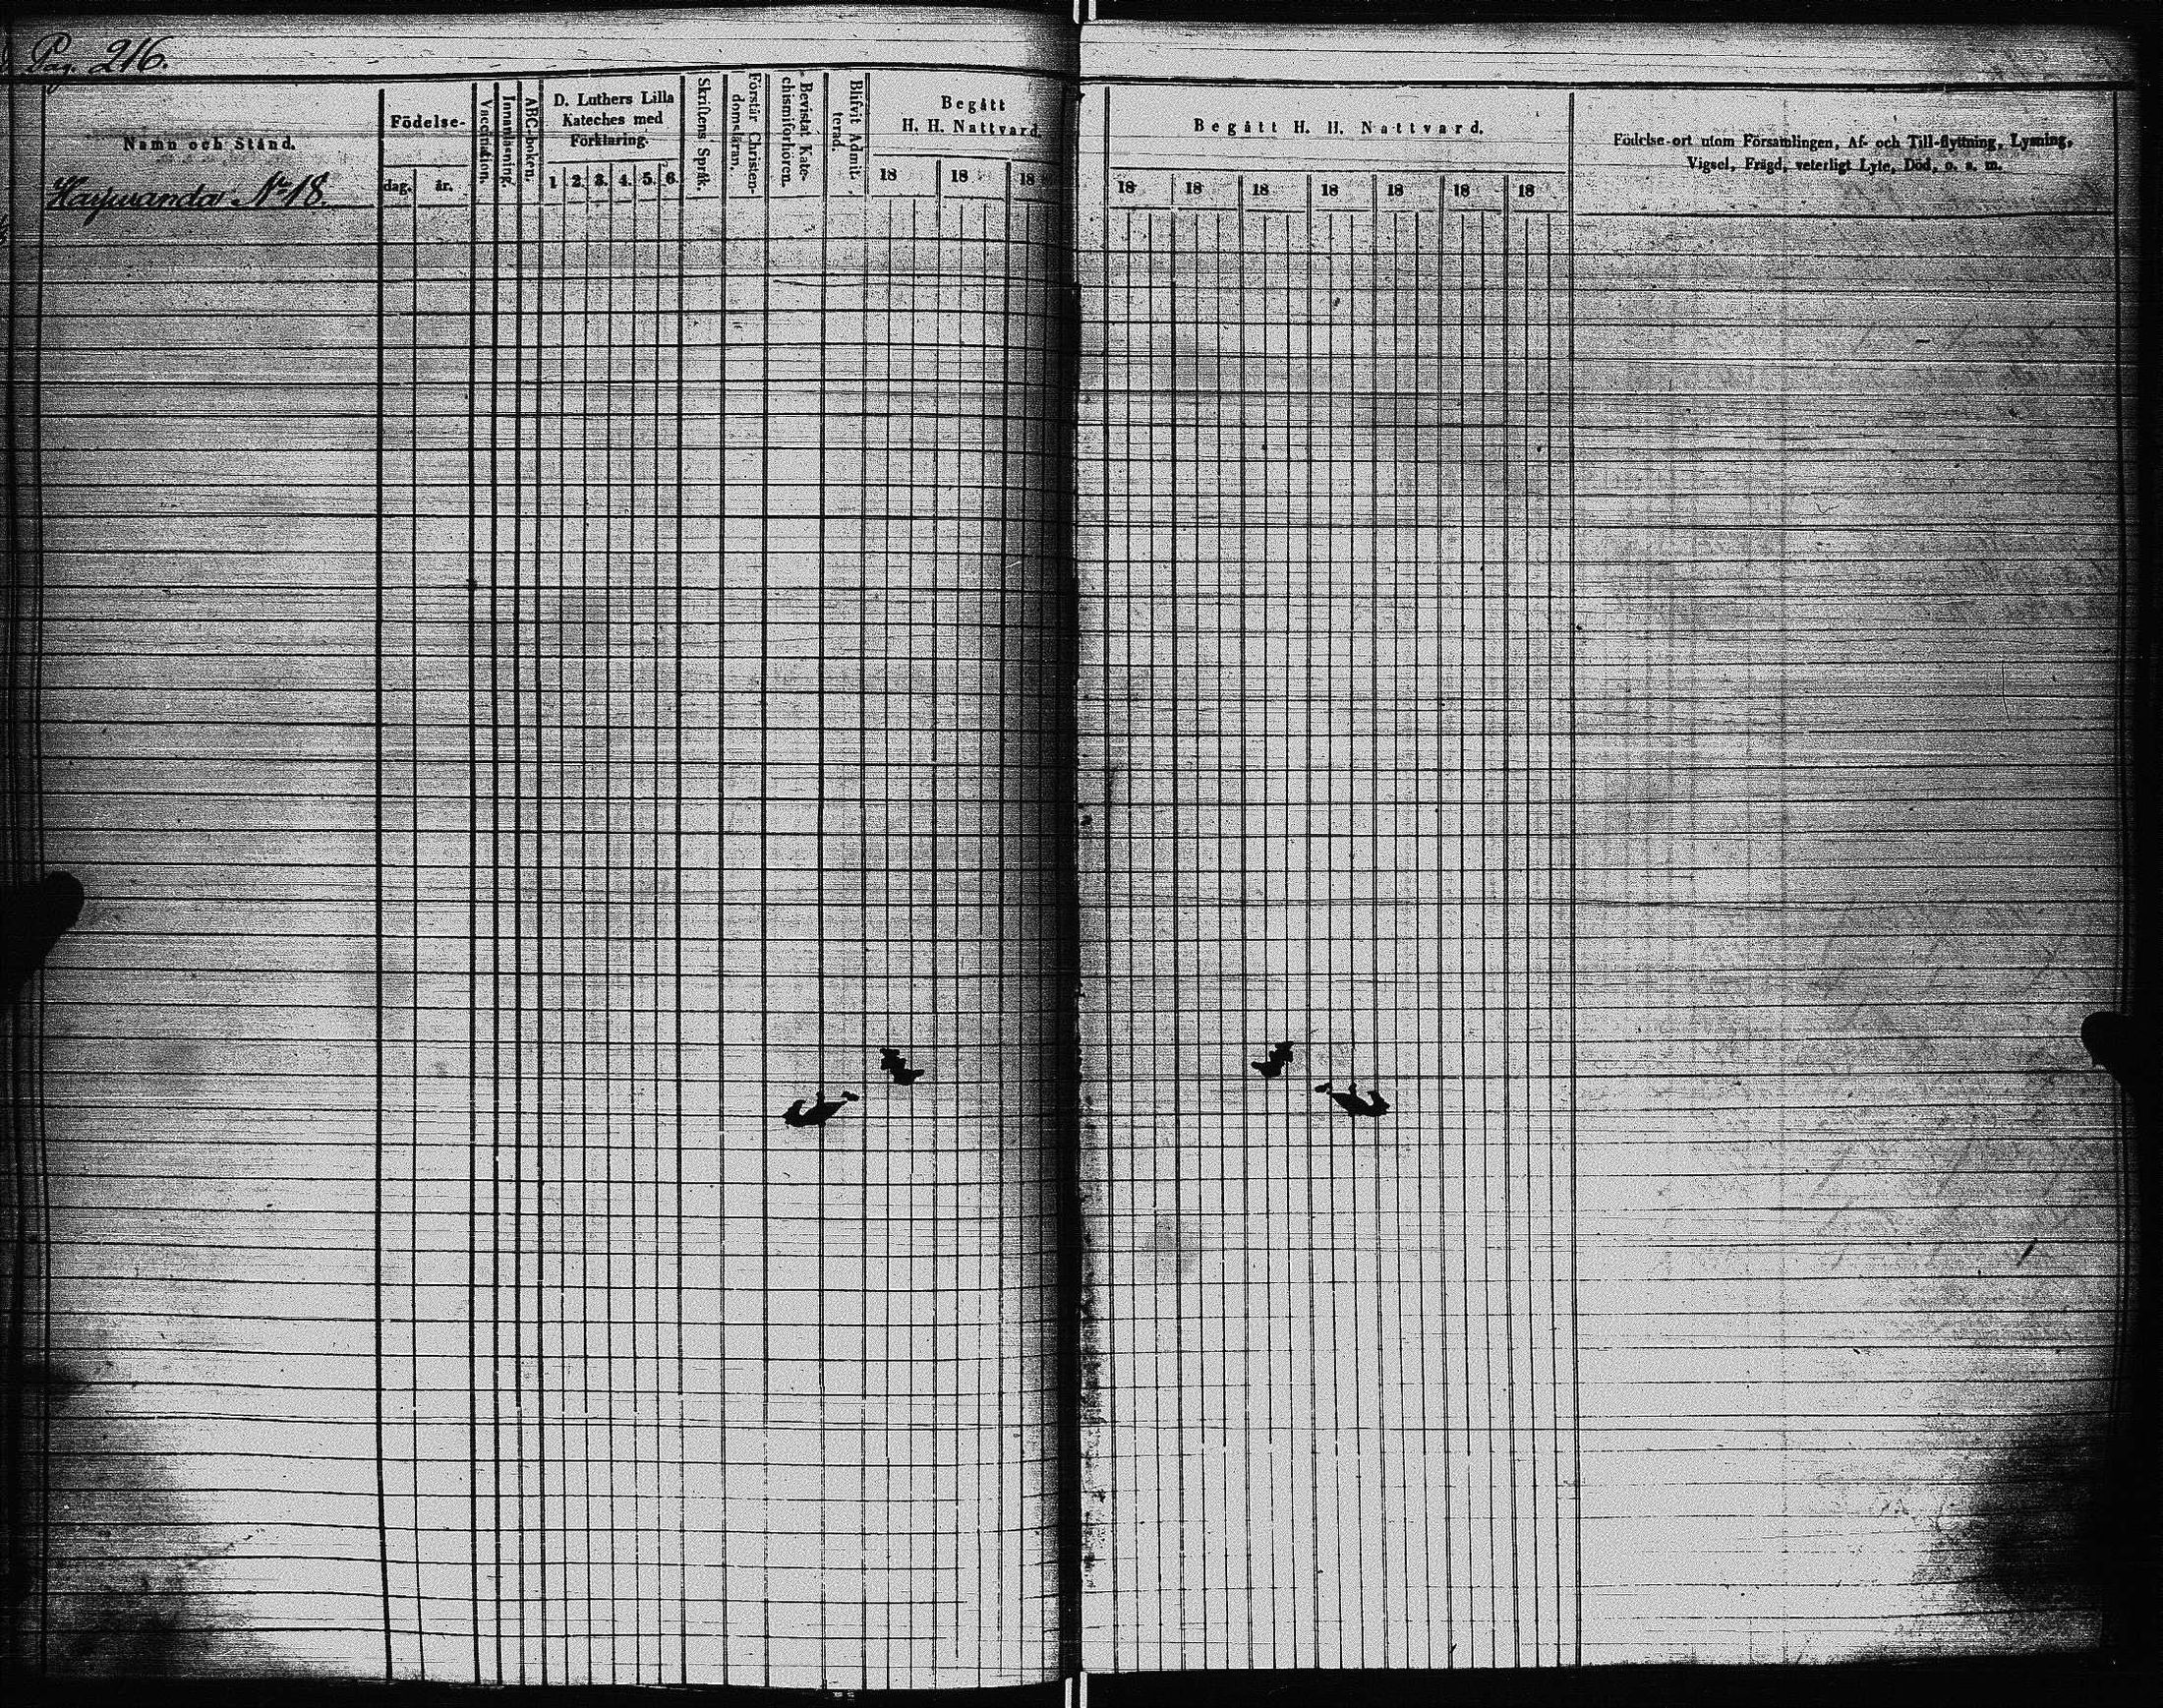 Pag. 216.
Namn och Stånd.
Födelse-
dag.
år.
Vaccination.
Innanläsning.
ABC-boken.
D. Luthers Lilla
Kateches med
Förklaring.
1 2. 3. 4. 5. 6.
Skriftens Språk.
Förstår Christen-
domsläran.
Bevistat Kate-
chismiförhören.
Blifvit Admit-
terad.
Begått
H. H. Nattvard.
18 18 18
Begått H. H. Nattvard.
18 18 18 18 18 18 18
Födelse-ort utom Församlingen, Af- och Till-flyttning, Lysning,
Vigsel, Frägd, veterligt Lyte, Död, o. s. m.
No 18.